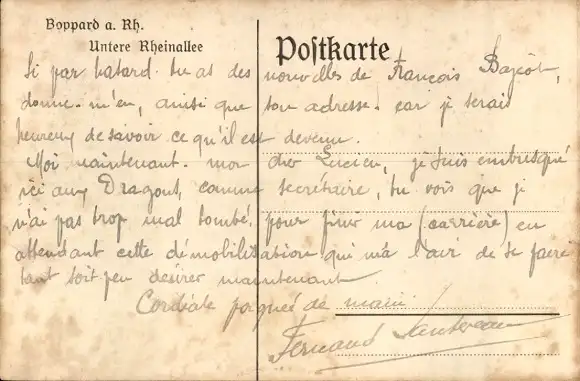 Boppard a. Rh.
Untere Rheinallee
Postkarte
Si par hasard tu as des nouvelles de François
donne-m'en, ainsi que son adresse. car je serais
heureux de savoir ce qu'il est devenu.
Moi maintenant. mon cher Lucien, je suis embusqué
ici aux Dragons, comme secrétaire, tu vois que je
n'ai pas trop mal tombé, pour finir ma (carrière) en
attendant cette démobilisation qui m'a l'air de se faire
tant soit peu désirer maintenant
Cordiale poignée de main.
Fernand